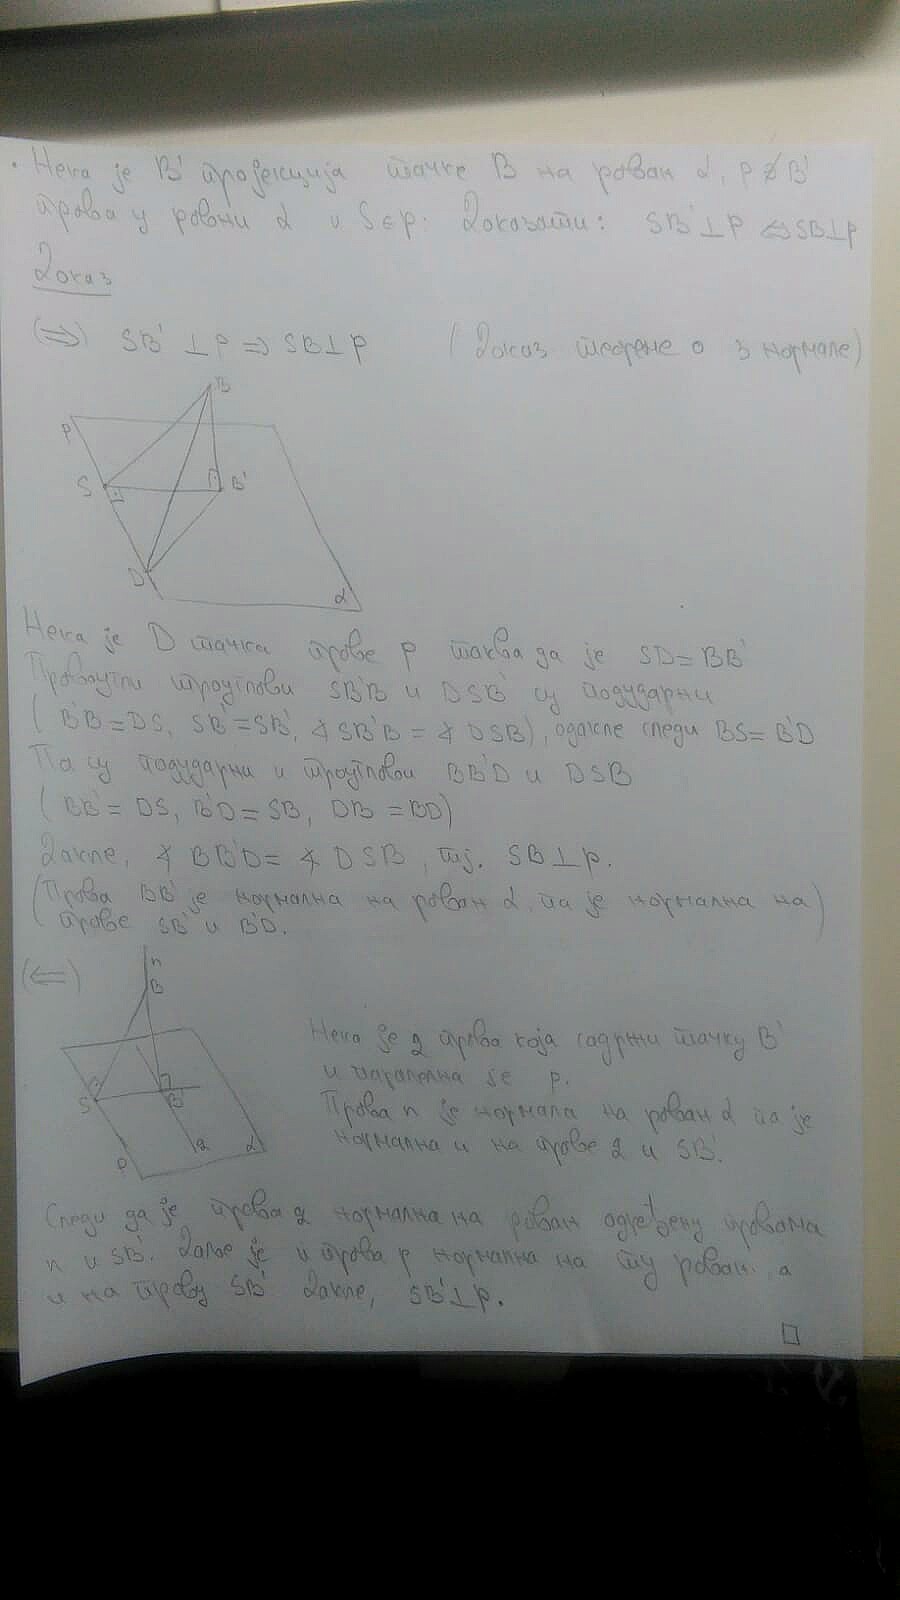 • Нека је B' пројекција тачке B на раван α, p ∌ B'
права у равни α и S∈p. Доказати: SB' ⊥ p ⇔ SB ⊥ p
Доказ
(⇒) SB' ⊥ p ⇒ SB ⊥ p (Доказ теореме о 3 нормале)
B
p
S B'
D
α
Нека је D тачка праве p таква да је SD = BB'
Правоугли троуглови SB'B и DSB' су подударни
( B'B = DS, SB' = SB', ∢ SB'B = ∢ DSB'), одакле следи BS = B'D
Па су подударни и троуглови BB'D и DSB
( BB' = DS, B'D = SB, DB = BD)
Дакле, ∢ BB'D = ∢ DSB, тј. SB ⊥ p.
(Права BB' је нормална на раван α, па је нормална на)
праве SB' и B'D.
(⇐)
n
B
S B'
p q α
Нека је q права која садржи тачку B'
и паралелна је p.
Права n је нормала на раван α па је
нормална и на праве q и SB'.
Следи да је права q нормална на раван одређену правама
n и SB'. Далје је и права p нормална на ту раван, а
и на праву SB' Дакле, SB' ⊥ p.
□